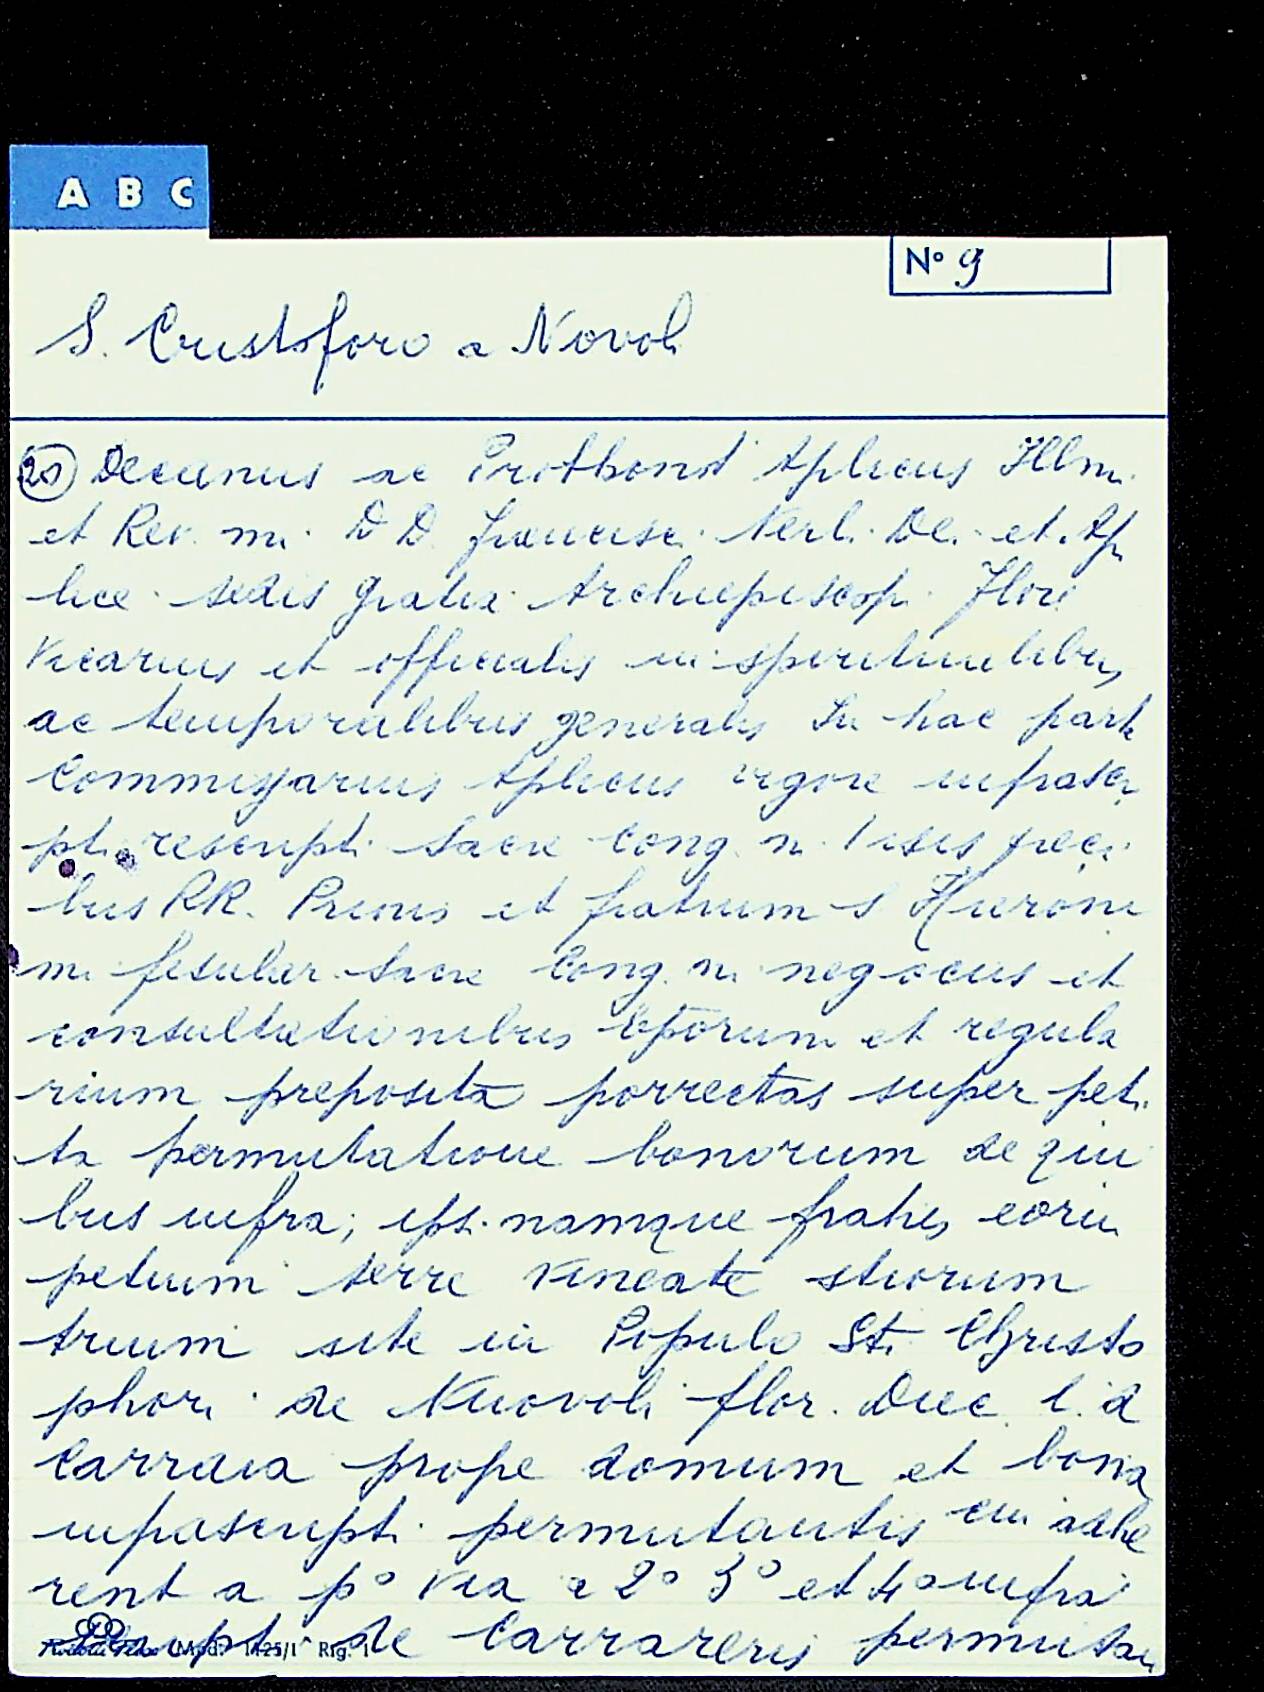 A B C
Nº 9
S. Cristoforo a Novoli
20) Decanus ac Prothonot Aplicus Illmi
et Rev. mi. D D. Francisci. Nerli. Dei. et. Ap
lice. sedis gratia. Archiepiscopi. Flori
Vicarius et officialis in spiritualibus,
ac temporalibus generalis In hac parte
Commissarius Aplicus vigore infrascri
pti rescripti. Sacre Cong. n. visis preci
bus RR. Prioris et fratrum S Hieroni
mi fesular. Sacre Cong. ni negociis et
consultationibus Eporum et regula
rium preposita porrectas super peti
ta permutatione bonorum de qui
bus infra; ipsi. namque fratres eoru
petium terre vineate stiorum
trium site in Populo Sti. Christo
phori. de Nuovoli flor. Duc. l. d
Carraia prope domum et bona
infrascripti. permutantis cui adhe
rent a pº via a 2º 3º et 4º infra
script. de Carrareris permutan
Mod. 1425/1^ Rig. 1